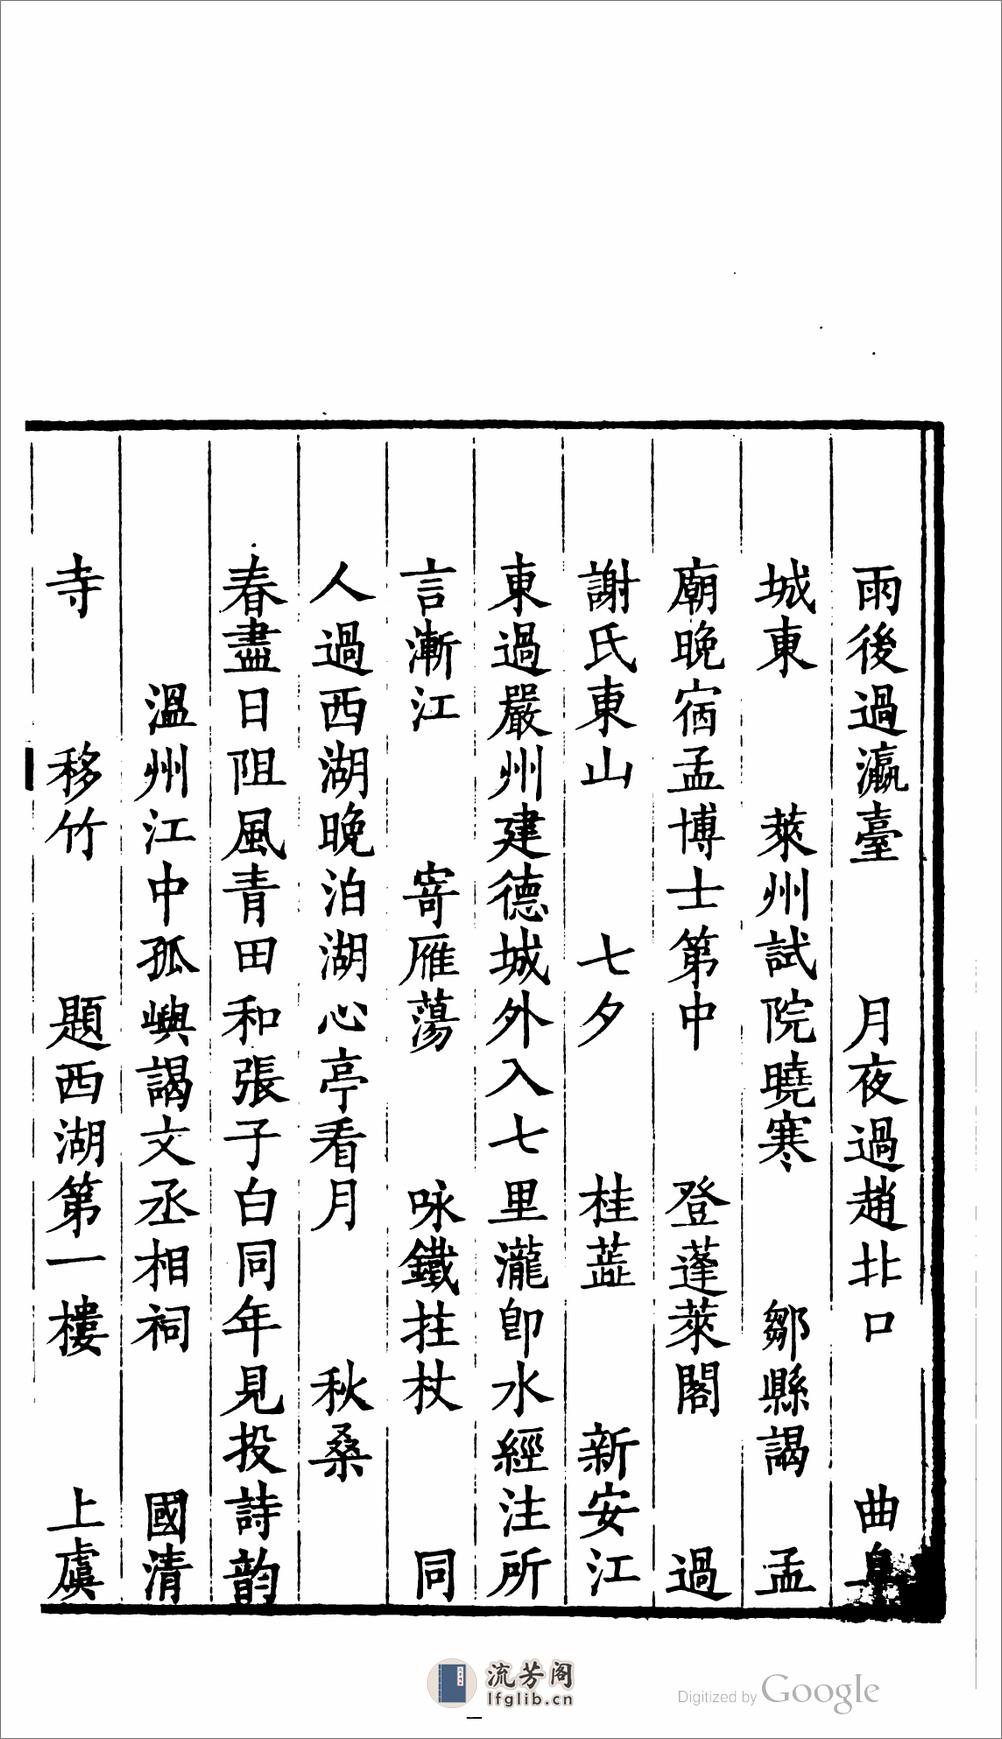 雨後過瀛臺　月夜過趙北口　曲阜
城東　萊州試院曉寒　鄒縣謁　孟
廟晚宿孟博士第中　登蓬萊閣　過
謝氏東山　七夕　桂蘂　新安江
東過嚴州建德城外入七里瀧卽水經注所
言漸江　寄雁蕩　咏鐵拄杖　同
人過西湖晚泊湖心亭看月　秋桑
春盡日阻風青田和張子白同年見投詩韵
溫州江中孤嶼謁文丞相祠　國清
寺　移竹　題西湖第一樓　上虞
流芳阁
lfglib.cn
Digitized by Google